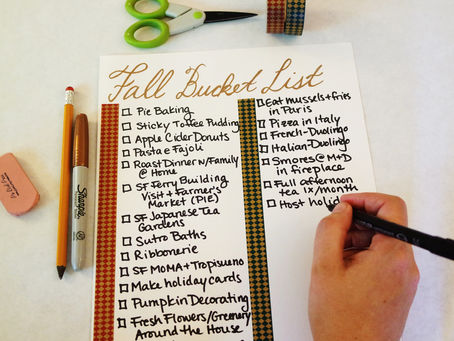 Fall Bucket List
Pie Baking
Sticky Toffee Pudding
Apple Cider Donuts
Pasta e Fajoli
Roast Dinner w/Family
@ Home
SF Ferry Building
Visit + Farmer's
Market (PIE)
SF Japanese Tea
Gardens
Sutro Baths
Ribbonerie
SF MOMA + Tropisueno
Make holiday cards
Pumpkin Decorating
Fresh Flowers/Greenery
Around the House
Eat mussels + fries
in Paris
Pizza in Italy
French-Duolingo
Italian-Duolingo
Smores @ M+D
in fireplace
Full afternoon
tea 1x/month
Host holid
Sharpie